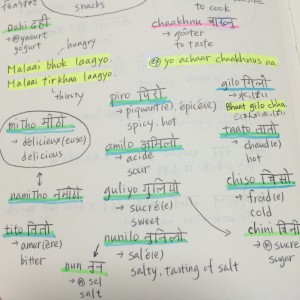 snacks
to cook
dahi दही
→ ⓜ yaourt
yogurt
chaakhnu चाख्नु
→ goûter
to taste
hungry
Malaai bhok laagyo.
Malaai tirkhaa laagyo.
thirsty
ex) yo achaar chaakhnus na.
piro पिरो
→ piquant(e), épicé(e)
spicy. hot
gilo गिलो
Bhaat gilo chha
miTho मीठो
→ délicieux(euse)
delicious
amilo अमिलो
→ acide
sour
taato तातो
→ chaud(e)
hot
namiTho नमीठो
guliyo गुलियो
→ sucré(e)
sweet
chiso चिसो
→ froid(e)
cold
tito तितो
→ amer(ère)
bitter
nunilo नुनिलो
→ salé(e)
salty. tasting of salt
chini चिनी
→ ⓜ sucre
sugar
nun नुन
→ ⓜ sel
salt